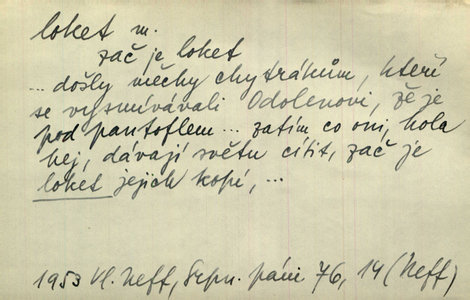 loket m.
zač je loket
... došly měchy chytrákům, kteří
se vysmívávali Odolenovi, že je
pod pantoflem... zatím co oni, hola
hej, dávají světu cítit, zač je
loket jejich kopí, ...
1953 Vl. Neff, Srpn. páni 76, 14 (Neff)